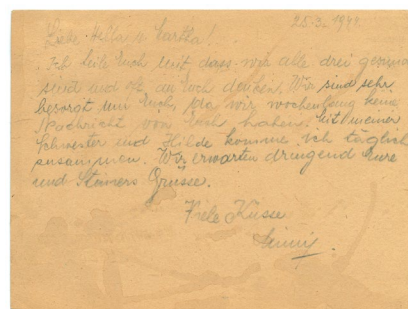 25.3.1944
Liebe Hella u. Martha!
Ich teile Euch mit dass wir alle drei gesund
sind und oft an Euch denken. Wir sind sehr
besorgt um Euch, da wir wochenlang keine
Nachricht von Euch haben. Mit meiner
Schwester und Hilde komme ich täglich
zusammen. Wir erwarten dringend Eure
und Steiners Grüsse.
Viele Küsse